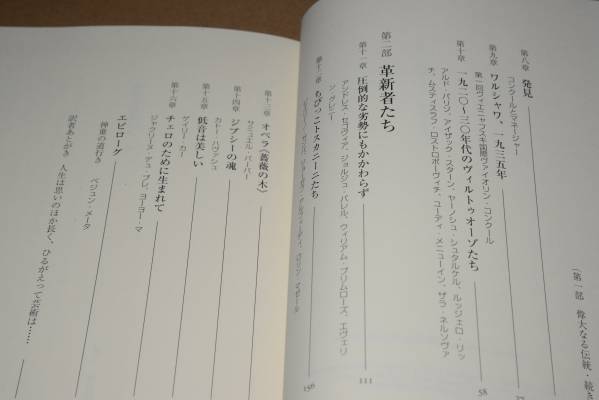 (第一部 偉大なる伝統・続き
第八章 発見
コンクールとマネージャー
37
第九章 ワルシャワ、一九三五年
第一回ヴィエニャフスキ国際ヴァイオリン・コンクール
58
第十章 一九二〇～三〇年代のヴィルトゥオーゾたち
アルド・パリゾ、アイザック・スターン、ヤーノシュ・シュタルケル、ルッジェロ・リッ
チ、ムスティスラフ・ロストロポーヴィチ、ユーディ・メニューイン、ザラ・ネルソヴァ
第二部 革新者たち
第十一章 圧倒的な劣勢にもかかわらず
111
アンドレス・セゴヴィア、ジョルジュ・バレル、ウィリアム・プリムローズ、エヴェリ
ン・グレニー
第十二章 ちびっこトスカニーニたち
156
ロリン・マゼール
第十三章 オペラ〈薔薇の木〉
サミュエル・バーバー
第十四章 ジプシーの魂
カトー・ハヴァシュ
第十五章 低音は美しい
ゲイリー・カー
第十六章 チェロのために生まれて
ジャクリーヌ・デュ・プレ、ヨーヨー・マ
エピローグ
神童の道行き ベジュン・メータ
訳者あとがき 人生は思いのほか長く、ひるがえって芸術は……